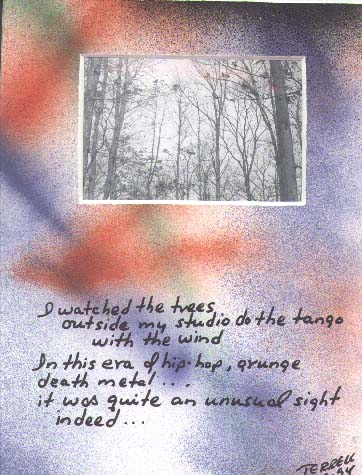 I watched the trees
outside my studio do the tango
with the wind
In this era of hip-hop, grunge
death metal...
it was quite an unusual sight
indeed...
TERRELL
94